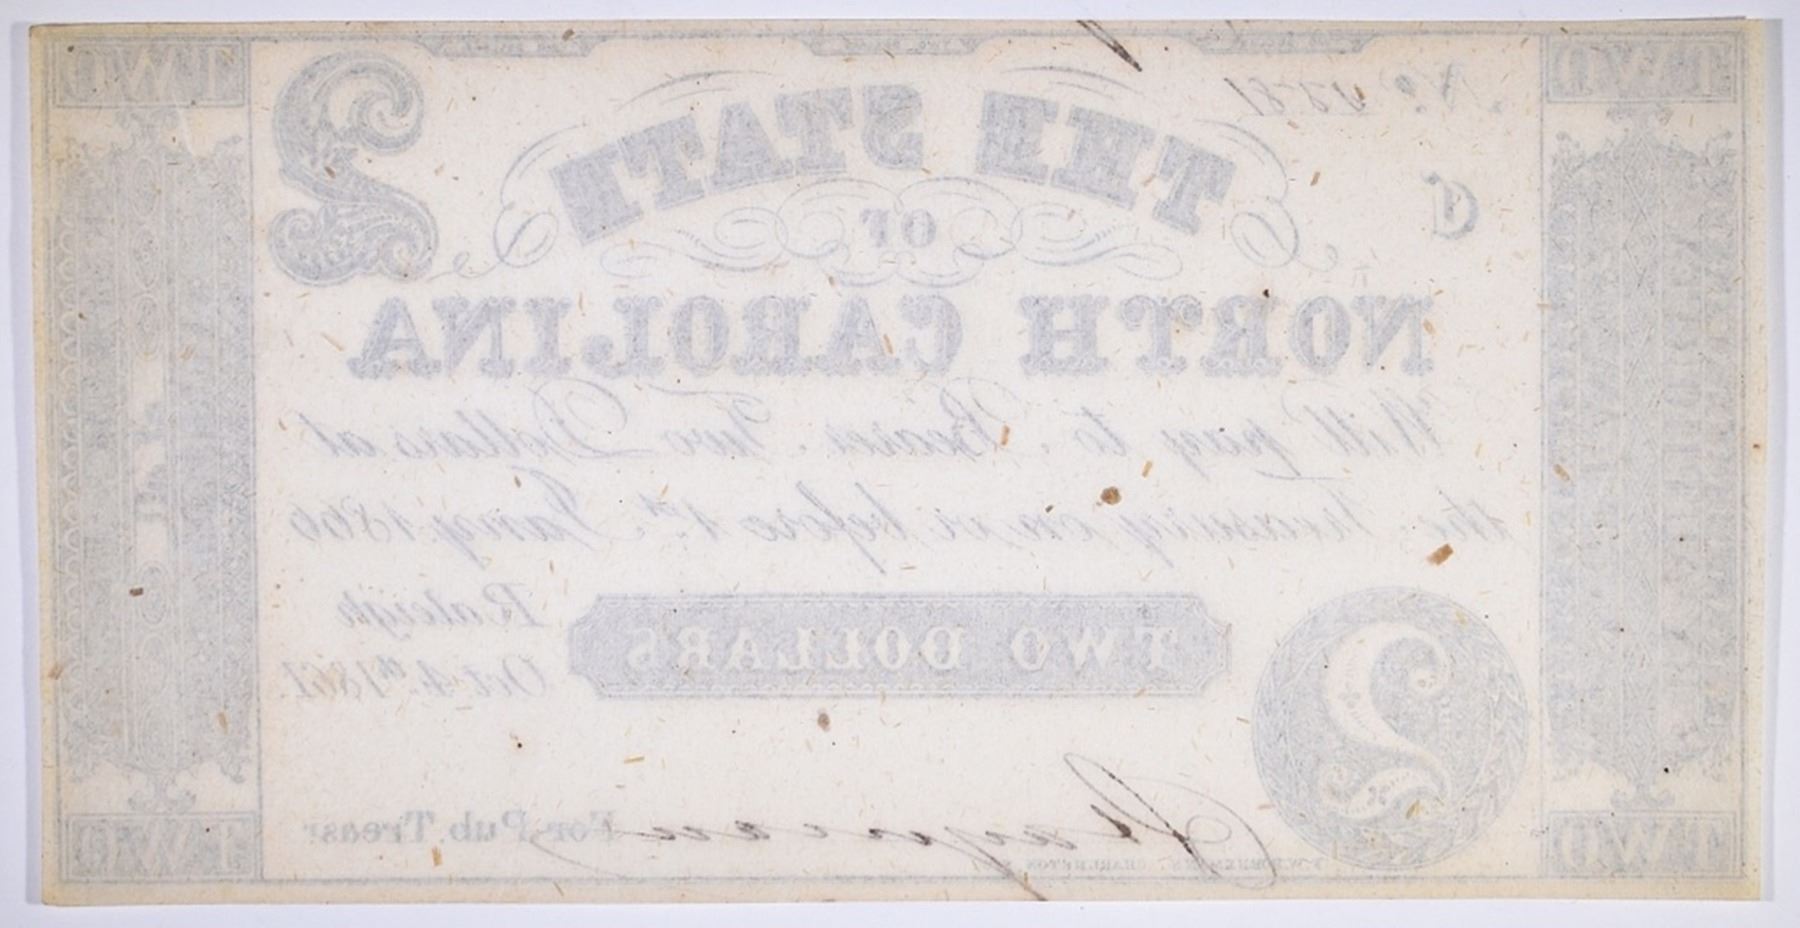 TWO TWO
THE STATE
2
C
OF
NORTH CAROLINA
Will pay to Bearer Two Dollars at
the Treasury on or before 1st Jan'y 1866
Raleigh
TWO DOLLARS
Oct. 4th 1861.
2
For Pub. Treasr
TWO TWO